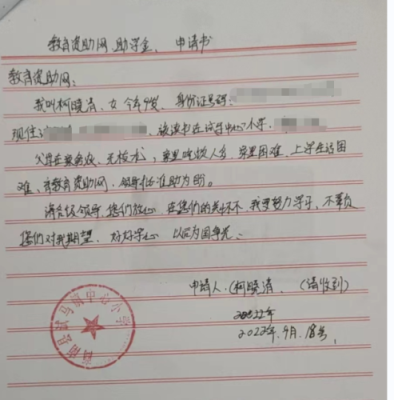 教育资助网 助学金、申请书
教育资助网:
我叫柯晓清、女 今年9岁、身份证号码:
现住 该读书在 中心小学、
父母在家务农、无技术; 家里吃饭人多、家里困难、上学生活困
难、 教育资助网、领导批准助为盼。
请 领导 您们放心、在您们的关怀下、我要努力学习、不辜负
您们对我期望、好好学心 以后为国争光.
申请人: (柯晓清、(请收到)
2022年
2022年.9月.
中心小学